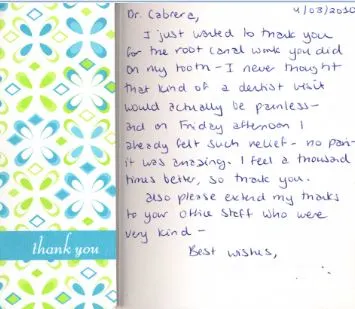 thank you
4/03/2010
Dr. Cabrera,
I just wanted to thank you
for the root canal work you did
on my tooth - I never thought
that kind of a dentist visit
would actually be painless -
and on Friday afternoon I
already felt such relief - no pain -
it was amazing. I feel a thousand
times better, so thank you.
Also please extend my thanks
to your office staff who were
very kind -
Best wishes,